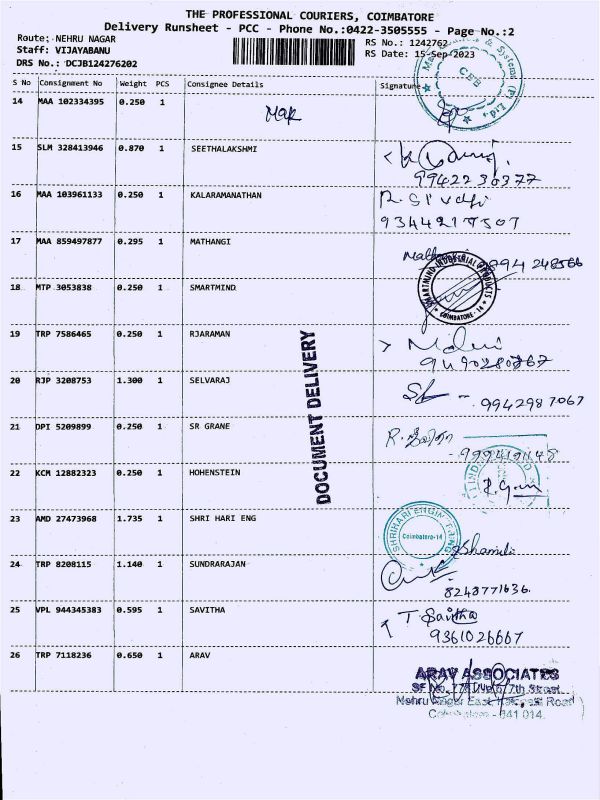 THE PROFESSIONAL COURIERS, COIMBATORE
Delivery Runsheet - PCC - Phone No.:0422-3505555 - Page No.:2
Route: NEHRU NAGAR
Staff: VIJAYABANU
DRS No.: DCJB124276202
RS No.: 1242762
RS Date: 15-Sep-2023
S No Consignment No Weight PCS Consignee Details Signature
14 MAA 102334395 0.250 1
15 SLM 328413946 0.870 1 SEETHALAKSHMI
99422 30377
16 MAA 103961133 0.250 1 KALARAMANATHAN
17 MAA 859497877 0.295 1 MATHANGI
18 MTP 3053838 0.250 1 SMARTMIND
SMARTMIND INDUSTRIAL PRODUCTS
COIMBATORE-14
19 TRP 7586465 0.250 1 RJARAMAN
20 RJP 3208753 1.300 1 SELVARAJ
9942987067
DOCUMENT DELIVERY
21 DPI 5209899 0.250 1 SR GRANE
22 KCM 12882323 0.250 1 HOHENSTEIN
23 AMD 27473968 1.735 1 SHRI HARI ENG
Coimbatore-14
24 TRP 8208115 1.140 1 SUNDRARAJAN
8248771636.
25 VPL 944345383 0.595 1 SAVITHA
T Savitha
9361026667
26 TRP 7118236 0.650 1 ARAV
ARAV ASSOCIATES
7th Street
Nehru Nagar East, Road
641 014.